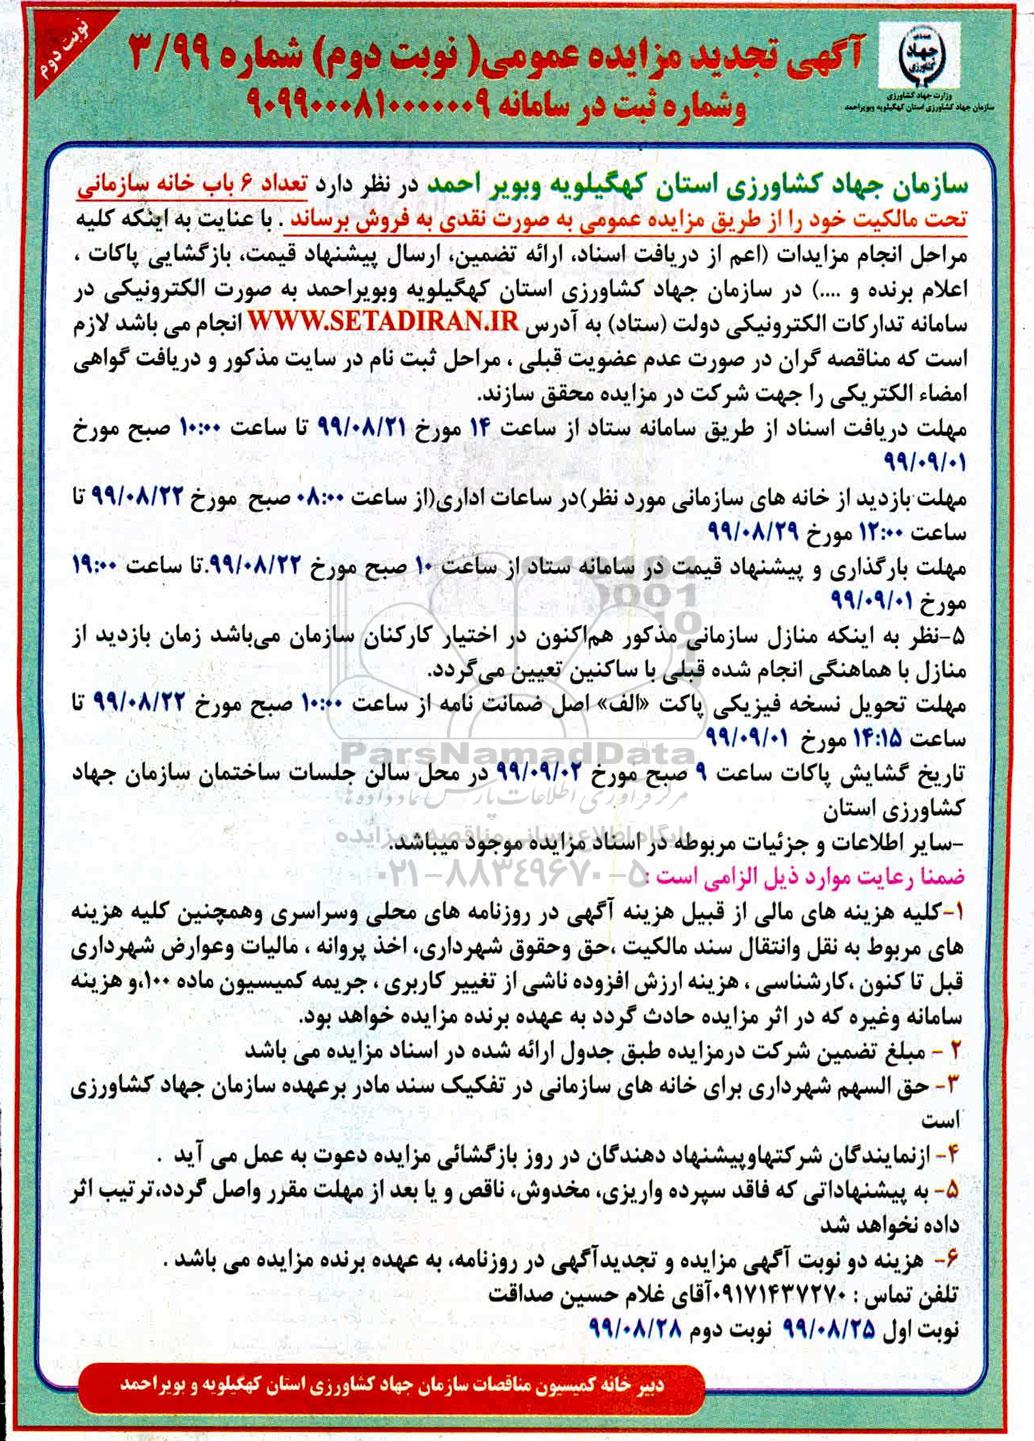 نوبت دوم
آگهی تجدید مزایده عمومی( نوبت دوم) شماره ۳/۹۹
وشماره ثبت در سامانه ۹۰۹۹۰۰۰۸۱۰۰۰۰۰۰۹
جهاد
کشاورزی
وزارت جهاد کشاورزی
سازمان جهاد کشاورزی استان کهگیلویه وبویراحمد
سازمان جهاد کشاورزی استان کهگیلویه وبویر احمد در نظر دارد تعداد ۶ باب خانه سازمانی
تحت مالکیت خود را از طریق مزایده عمومی به صورت نقدی به فروش برساند . با عنایت به اینکه کلیه
مراحل انجام مزایدات (اعم از دریافت اسناد، ارائه تضمین، ارسال پیشنهاد قیمت، بازگشایی پاکات ،
اعلام برنده و ....) در سازمان جهاد کشاورزی استان کهگیلویه وبویراحمد به صورت الکترونیکی در
سامانه تدارکات الکترونیکی دولت (ستاد) به آدرس WWW.SETADIRAN.IR انجام می باشد لازم
است که مناقصه گران در صورت عدم عضویت قبلی ، مراحل ثبت نام در سایت مذکور و دریافت گواهی
امضاء الکتریکی را جهت شرکت در مزایده محقق سازند.
مهلت دریافت اسناد از طریق سامانه ستاد از ساعت ۱۴ مورخ ۹۹/۰۸/۲۱ تا ساعت ۱۰:۰۰ صبح مورخ
۹۹/۰۹/۰۱
مهلت بازدید از خانه های سازمانی مورد نظر)در ساعات اداری(از ساعت ۰۸:۰۰ صبح مورخ ۹۹/۰۸/۲۲ تا
ساعت ۱۲:۰۰ مورخ ۹۹/۰۸/۲۹
مهلت بارگذاری و پیشنهاد قیمت در سامانه ستاد از ساعت ۱۰ صبح مورخ ۹۹/۰۸/۲۲.تا ساعت ۱۹:۰۰
مورخ ۹۹/۰۹/۰۱
۵-نظر به اینکه منازل سازمانی مذکور هم‌اکنون در اختیار کارکنان سازمان می‌باشد زمان بازدید از
منازل با هماهنگی انجام شده قبلی با ساکنین تعیین می‌گردد.
مهلت تحویل نسخه فیزیکی پاکت «الف» اصل ضمانت نامه از ساعت ۱۰:۰۰ صبح مورخ ۹۹/۰۸/۲۲ تا
ساعت ۱۴:۱۵ مورخ ۹۹/۰۹/۰۱
ParsNamadData
تاریخ گشایش پاکات ساعت ۹ صبح مورخ ۹۹/۰۹/۰۲ در محل سالن جلسات ساختمان سازمان جهاد
کشاورزی استان
مرکز فرآوری اطلاعات پارس نماد داده ها
پایگاه اطلاع رسانی مناقصه و مزایده
-سایر اطلاعات و جزئیات مربوطه در اسناد مزایده موجود میباشد.
۰۲۱-۸۸۳۴۹۶۷۰-۵
ضمنا رعایت موارد ذیل الزامی است :
۱-کلیه هزینه های مالی از قبیل هزینه آگهی در روزنامه های محلی وسراسری وهمچنین کلیه هزینه
های مربوط به نقل وانتقال سند مالکیت ،حق وحقوق شهرداری، اخذ پروانه ، مالیات وعوارض شهرداری
قبل تا کنون ،کارشناسی ، هزینه ارزش افزوده ناشی از تغییر کاربری ، جریمه کمیسیون ماده ۱۰۰،و هزینه
سامانه وغیره که در اثر مزایده حادث گردد به عهده برنده مزایده خواهد بود.
۲ - مبلغ تضمین شرکت درمزایده طبق جدول ارائه شده در اسناد مزایده می باشد
۳- حق السهم شهرداری برای خانه های سازمانی در تفکیک سند مادر برعهده سازمان جهاد کشاورزی
است
۴- ازنمایندگان شرکتهاوپیشنهاد دهندگان در روز بازگشائی مزایده دعوت به عمل می آید .
۵- به پیشنهاداتی که فاقد سپرده واریزی، مخدوش، ناقص و یا بعد از مهلت مقرر واصل گردد،ترتیب اثر
داده نخواهد شد
۶- هزینه دو نوبت آگهی مزایده و تجدیدآگهی در روزنامه، به عهده برنده مزایده می باشد .
تلفن تماس : ۰۹۱۷۱۴۳۷۲۷۰آقای غلام حسین صداقت
نوبت اول ۹۹/۰۸/۲۵ نوبت دوم ۹۹/۰۸/۲۸
دبیر خانه کمیسیون مناقصات سازمان جهاد کشاورزی استان کهگیلویه و بویراحمد